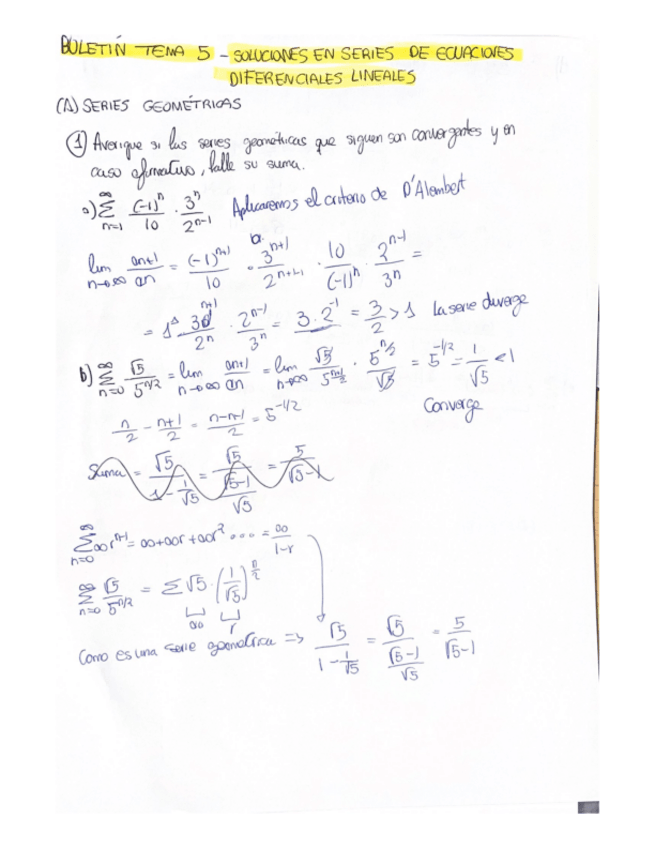 BOLETÍN TEMA 5 - SOLUCIONES EN SERIES DE ECUACIONES
DIFERENCIALES LINEALES
(A) SERIES GEOMÉTRICAS
① Averigue si las series geométricas que siguen son convergentes y en
caso afirmativo, halle su suma.
a) ∑_{n=1}^{∞} (-1)^n/10 · 3^n/2^{n-1} Aplicaremos el criterio de D'Alembert
lim_{n→∞} an+1/an = (-1)^{n+1}/10 · 3^{n+1}/2^{n+1-1} · 10/(-1)^n · 2^{n-1}/3^n =
= 1 · 3^{n+1}/2^n · 2^{n-1}/3^n = 3·2^{-1} = 3/2 > 1 la serie diverge
b) ∑_{n=0}^{∞} √5/5^{n/2} = lim_{n→∞} an+1/an = lim_{n→∞} √5/5^{(n+1)/2} · 5^{n/2}/√5 = 5^{-1/2} = 1/√5 < 1
n/2 - n+1/2 = n-n-1/2 = 5^{-1/2} Converge
Suma = √5/(1 - 1/√5) = √5/((√5-1)/√5) = 5/(√5-1)
∑_{n=0}^{∞} a₀r^{n-1} = a₀+a₀r+a₀r² ... = a₀/(1-r)
∑_{n=0}^{∞} √5/5^{n/2} = ∑ √5 · (1/√5)^{n/2}
a₀ r
Como es una serie geométrica => √5/(1 - 1/√5) = √5/((√5-1)/√5) = 5/(√5-1)